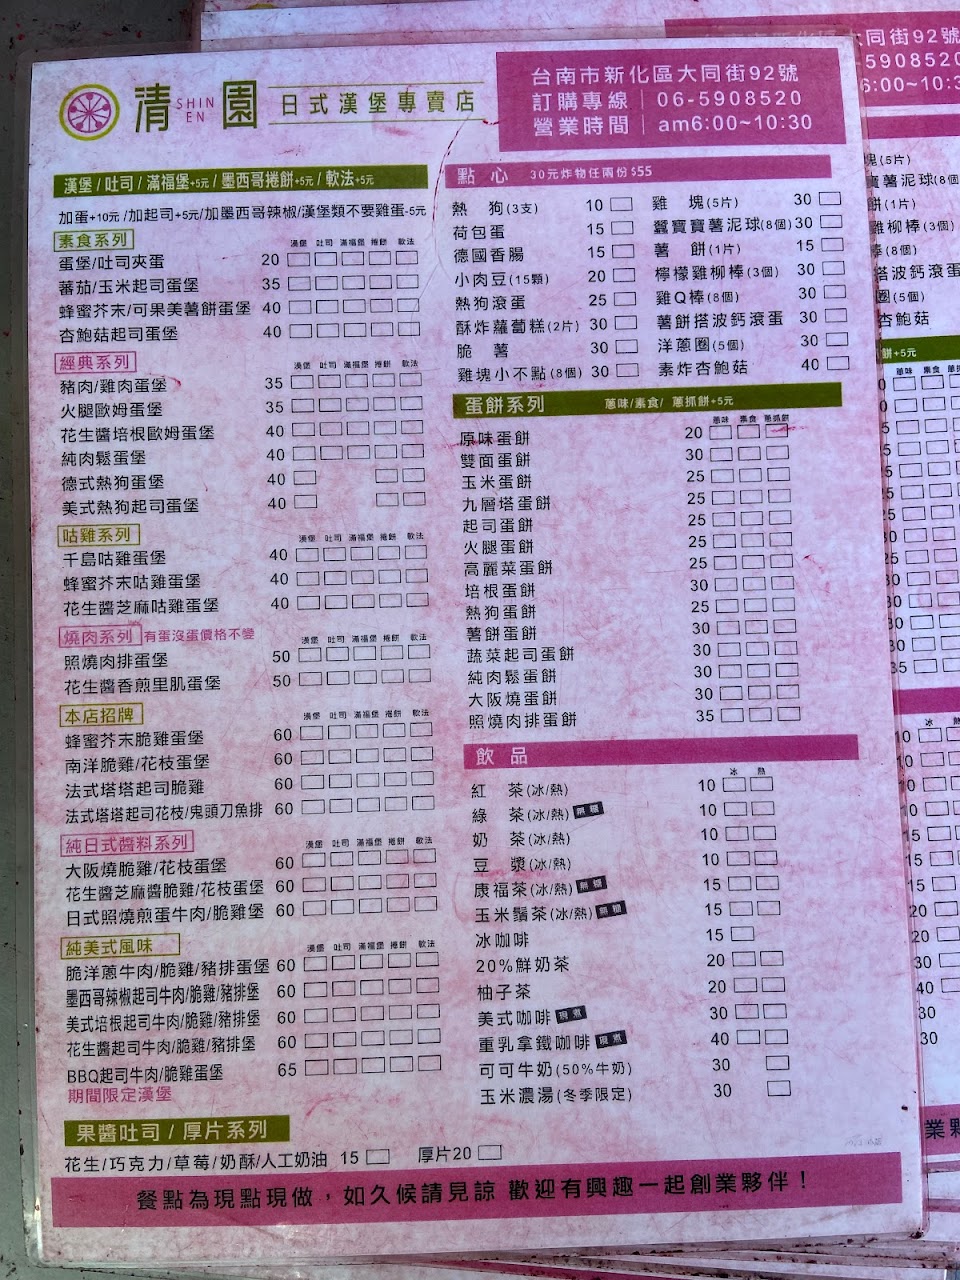 清園
SHIN EN
日式漢堡專賣店
台南市新化區大同街92號
訂購專線｜06-5908520
營業時間｜am6:00~10:30
漢堡/吐司/滿福堡+5元/墨西哥捲餅+5元/軟法+5元
加蛋+10元/加起司+5元/加墨西哥辣椒/漢堡類不要雞蛋-5元
素食系列 漢堡 吐司 滿福堡 捲餅 軟法
蛋堡/吐司夾蛋 20
蕃茄/玉米起司蛋堡 35
蜂蜜芥末/可果美薯餅蛋堡 40
杏鮑菇起司蛋堡 40
經典系列 漢堡 吐司 滿福堡 捲餅 軟法
豬肉/雞肉蛋堡 35
火腿歐姆蛋堡 35
花生醬培根歐姆蛋堡 40
純肉鬆蛋堡 40
德式熱狗蛋堡 40
美式熱狗起司蛋堡 40
咕雞系列 漢堡 吐司 滿福堡 捲餅 軟法
千島咕雞蛋堡 40
蜂蜜芥末咕雞蛋堡 40
花生醬芝麻咕雞蛋堡 40
燒肉系列 有蛋沒蛋價格不變 漢堡 吐司 滿福堡 捲餅 軟法
照燒肉排蛋堡 50
花生醬香煎里肌蛋堡 50
本店招牌 漢堡 吐司 滿福堡 捲餅 軟法
蜂蜜芥末脆雞蛋堡 60
南洋脆雞/花枝蛋堡 60
法式塔塔起司脆雞 60
法式塔塔起司花枝/鬼頭刀魚排 60
純日式醬料系列 漢堡 吐司 滿福堡 捲餅 軟法
大阪燒脆雞/花枝蛋堡 60
花生醬芝麻醬脆雞/花枝蛋堡 60
日式照燒煎蛋牛肉/脆雞堡 60
純美式風味 漢堡 吐司 滿福堡 捲餅 軟法
脆洋蔥牛肉/脆雞/豬排蛋堡 60
墨西哥辣椒起司牛肉/脆雞/豬排堡 60
美式培根起司牛肉/脆雞/豬排堡 60
花生醬起司牛肉/脆雞/豬排堡 60
BBQ起司牛肉/脆雞蛋堡 65
期間限定漢堡
果醬吐司/厚片系列
花生/巧克力/草莓/奶酥/人工奶油 15 厚片20
點心 30元炸物任兩份$55
熱 狗(3支) 10
荷包蛋 15
德國香腸 15
小肉豆(15顆) 20
熱狗滾蛋 25
酥炸蘿蔔糕(2片) 30
脆 薯 30
雞塊小不點(8個) 30
雞 塊(5片) 30
蠶寶寶薯泥球(8個) 30
薯 餅(1片) 15
檸檬雞柳棒(3個) 30
雞Q棒(8個) 30
薯餅搭波鈣滾蛋 30
洋蔥圈(5個) 30
素炸杏鮑菇 40
蛋餅系列 蔥味/素食/ 蔥抓餅+5元
蔥味 素食 蔥抓餅
原味蛋餅 20
雙面蛋餅 30
玉米蛋餅 25
九層塔蛋餅 25
起司蛋餅 25
火腿蛋餅 25
高麗菜蛋餅 25
培根蛋餅 30
熱狗蛋餅 25
薯餅蛋餅 30
蔬菜起司蛋餅 30
純肉鬆蛋餅 30
大阪燒蛋餅 30
照燒肉排蛋餅 35
飲品
冰 熱
紅 茶(冰/熱) 10
綠 茶(冰/熱) 無糖 10
奶 茶(冰/熱) 10
豆 漿(冰/熱) 10
康福茶(冰/熱) 無糖 15
玉米鬚茶(冰/熱) 無糖 15
冰咖啡 15
20%鮮奶茶 20
柚子茶 20
美式咖啡 現煮 30
重乳拿鐵咖啡 現煮 40
可可牛奶(50%牛奶) 30
玉米濃湯(冬季限定) 30
餐點為現點現做，如久候請見諒 歡迎有興趣一起創業夥伴！